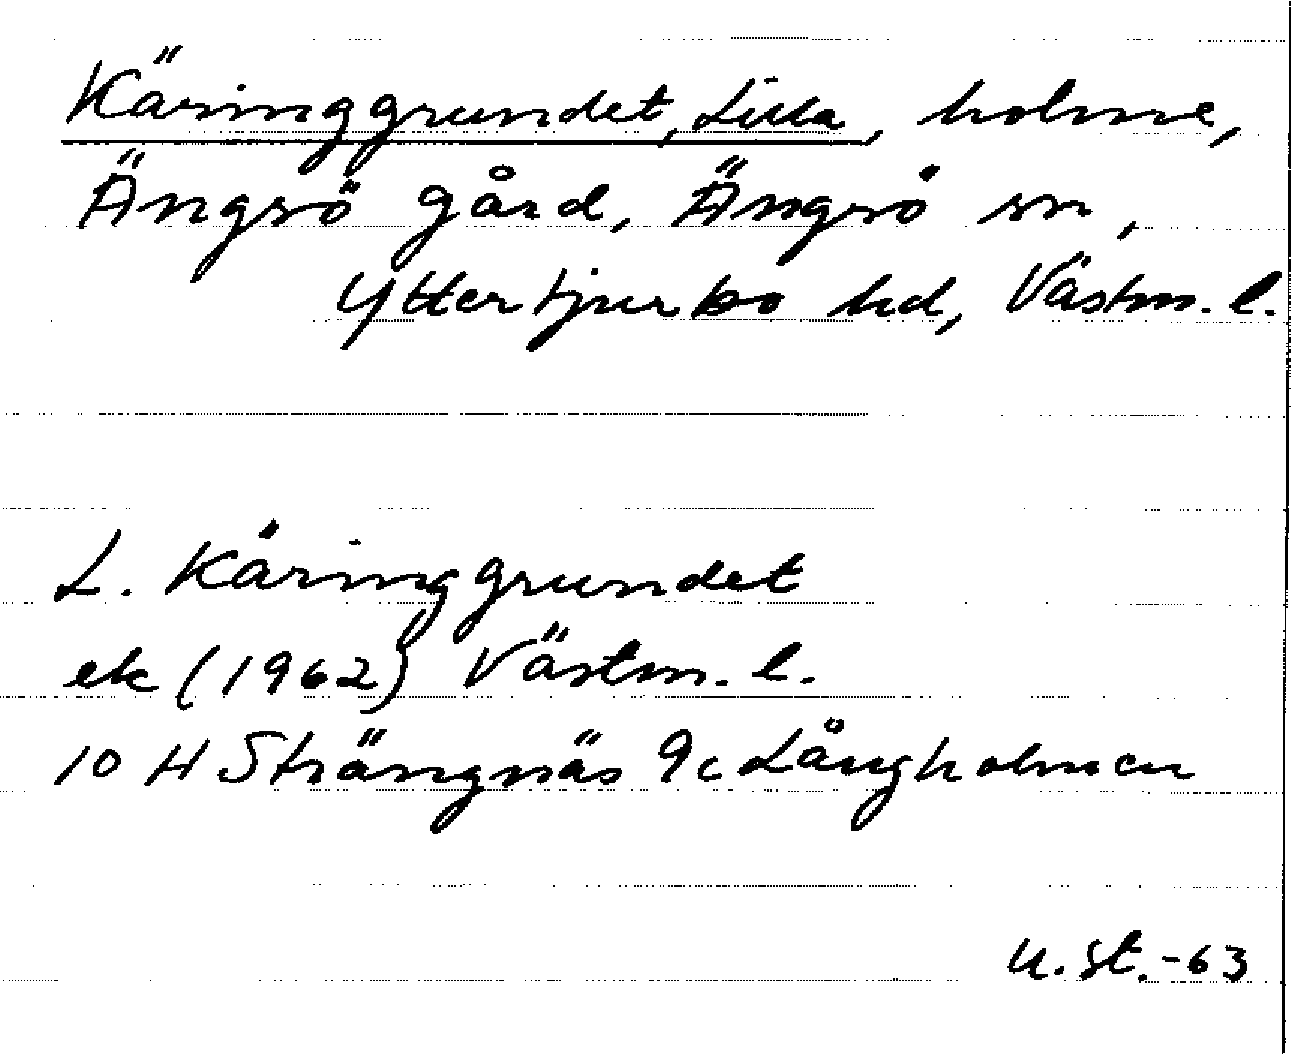 Käringgrundet, Lilla, holme,
Ängsö gård, Ängsö sn,
Yttertjurbo hd, Västm. l.
L. Käringgrundet
ek (1962) Västm. l.
10 H Strängnäs 9c Långholmen
U. St. -63